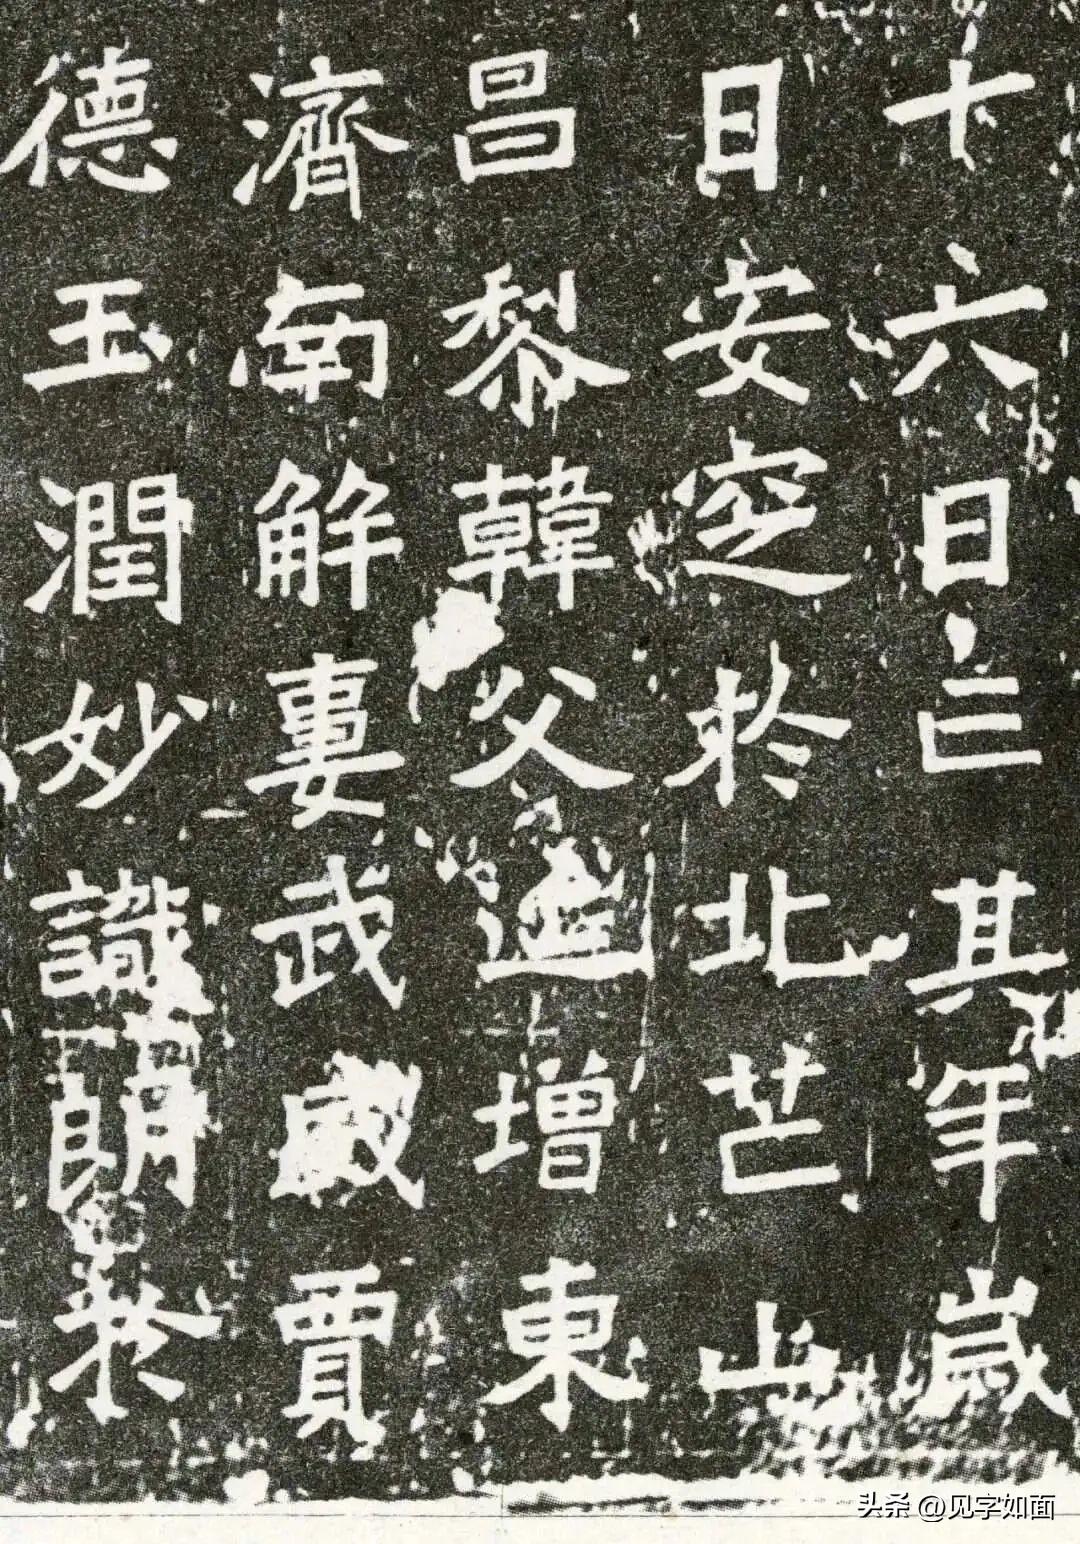 十六日亡其年歲
日安窆於北芒山
昌黎韓父增東
濟南解婁武威賈
德玉潤妙識朗
头条 @见字如面